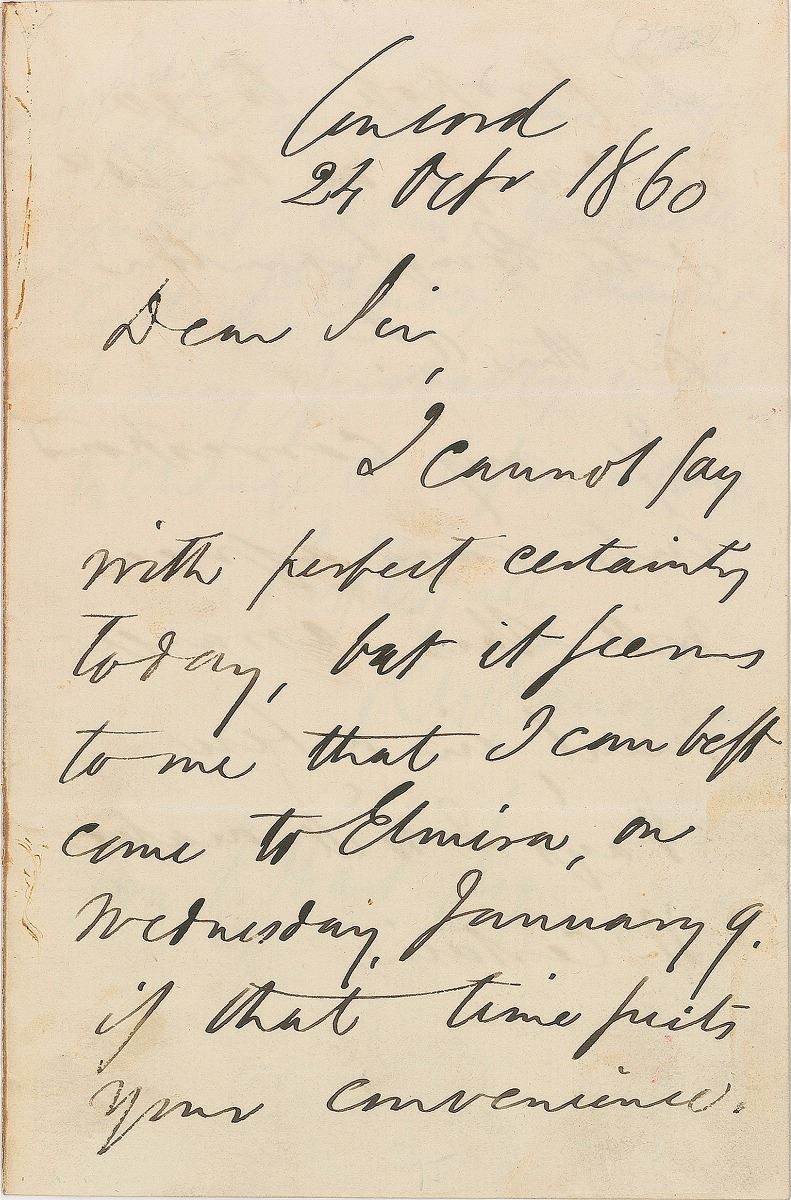 Concord
24 Octr 1860
Dear Sir,
I cannot say
with perfect certainty
today, but it seems
to me that I can best
come to Elmira, on
Wednesday, January 9.
if that time suits
your convenience.